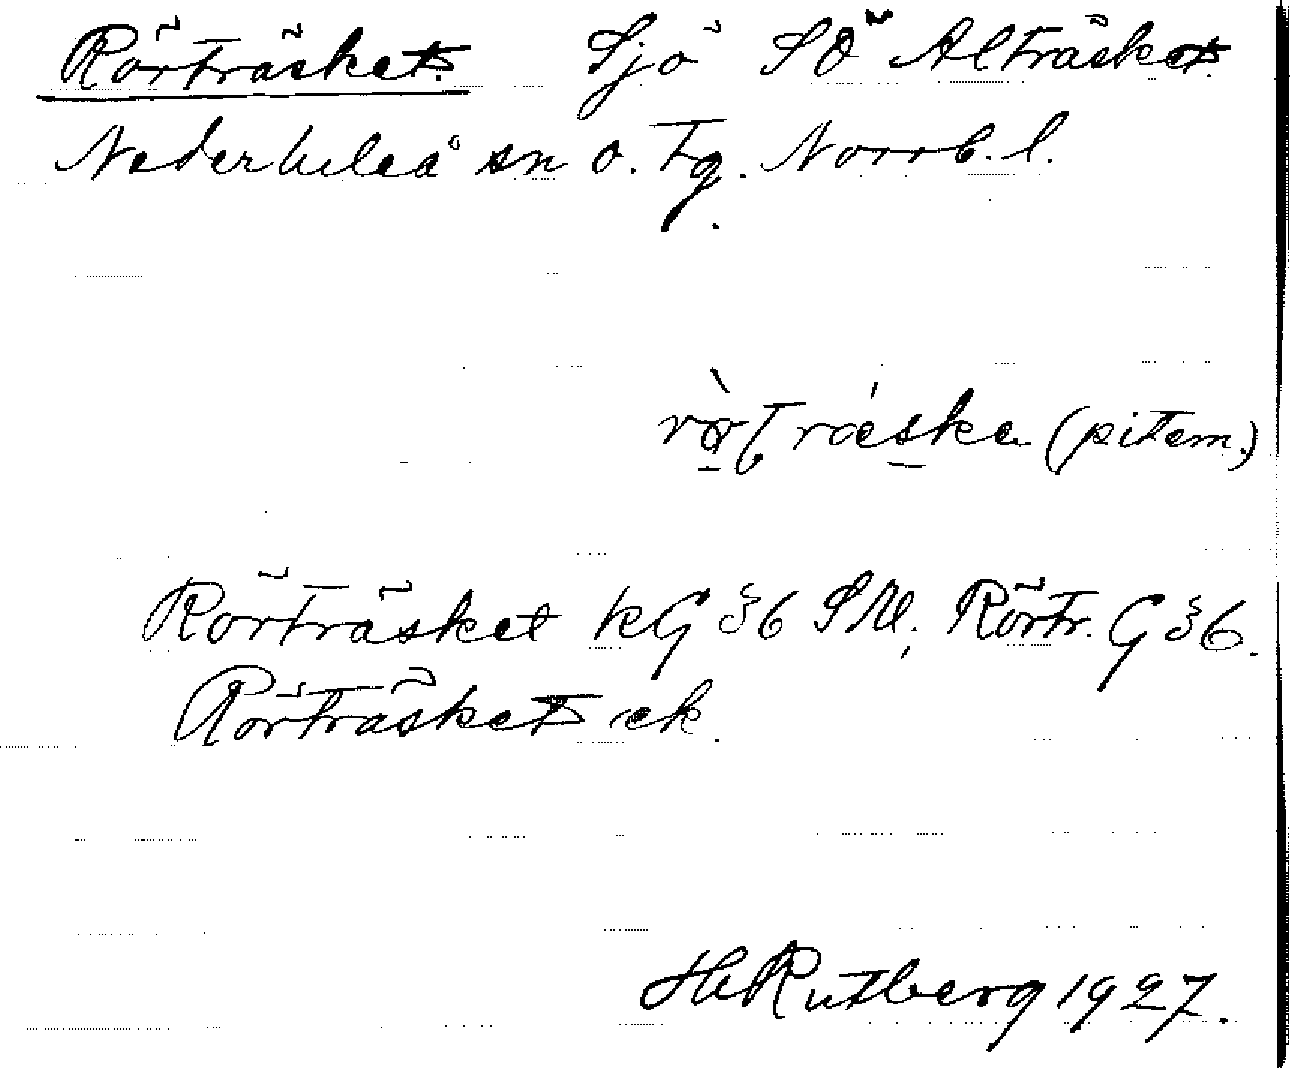 Rörträsket Sjö SÖ Alträsket
Nederluleå sn o. tg. Norrb. l.
(pitem.)
Rörträsket kG §6 SW; Rörtr. G §6.
Rörträsket ek.
H Rutberg 1927.